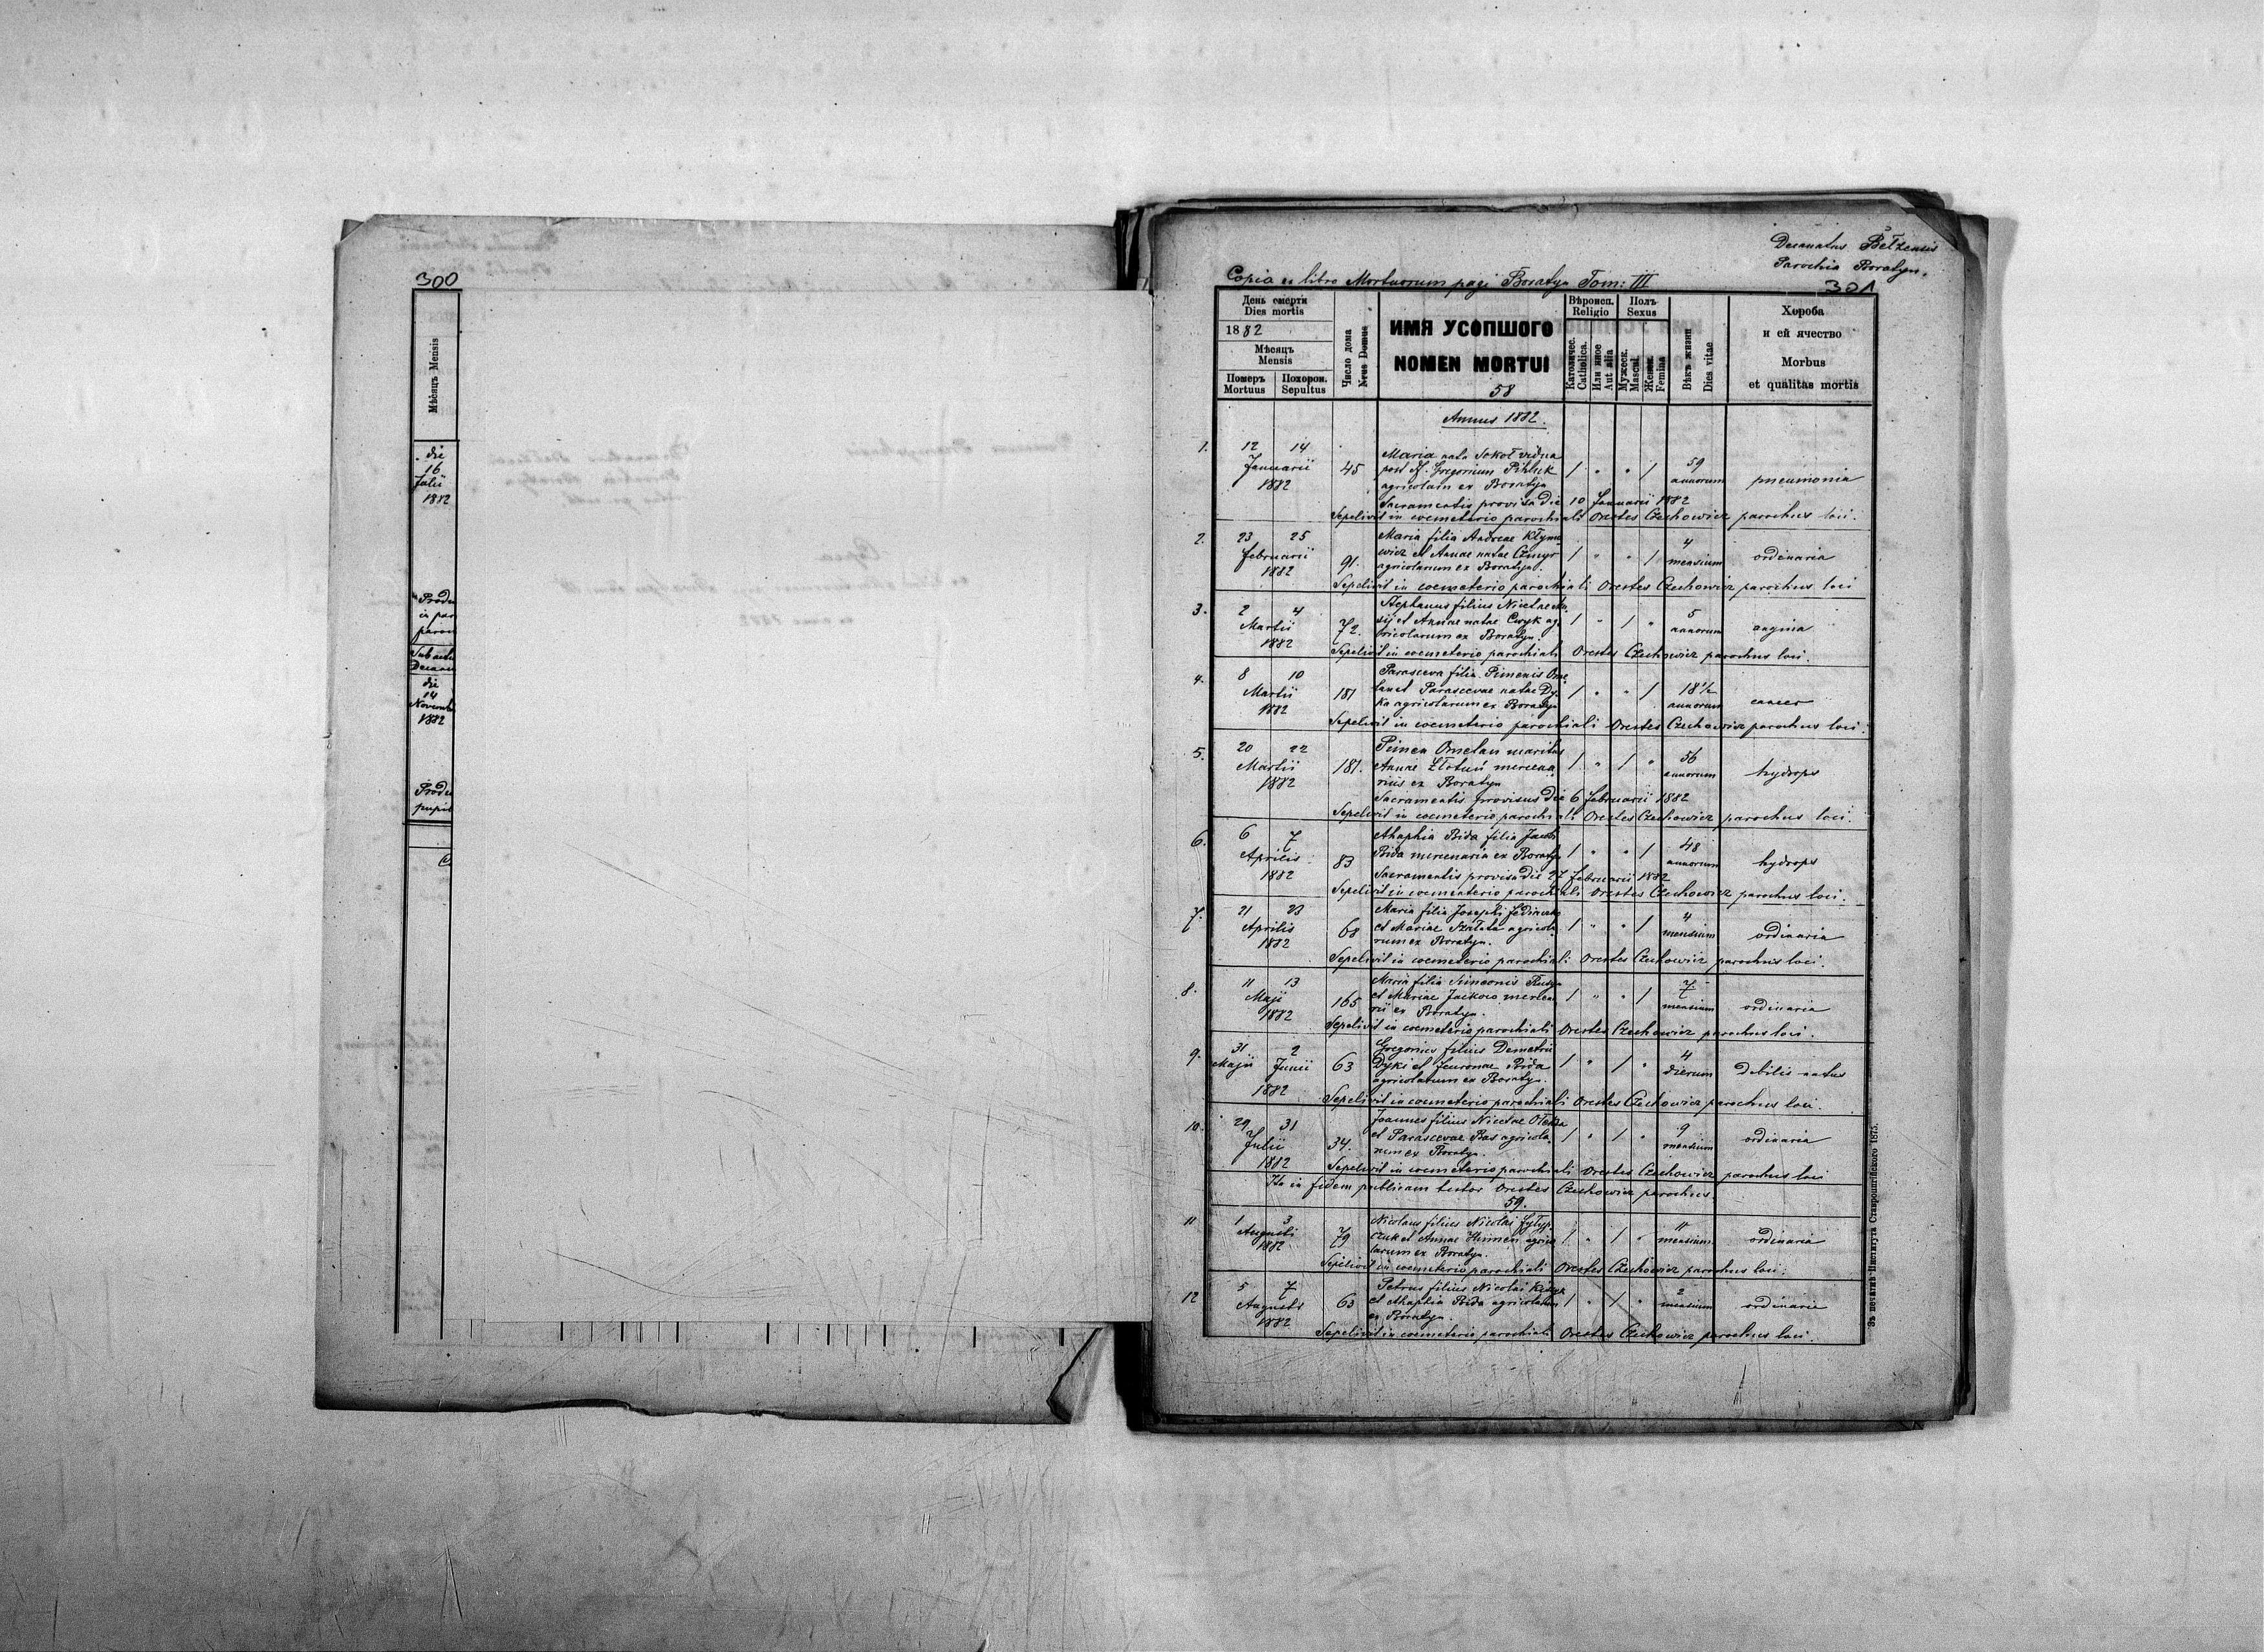 300
Мѣсяцъ Mensis
die
16
Julii
1882
Produ
in par
paroc
Sub actu
Decan
die
14
Novemb
1882
Produ
pupil
Decanatus Bełzensis
Parochia Boratyn.
Copia ex libro Mortuorum pagi Boratyn Tom: III
301
День смерти
Dies mortis
1882
Мѣсяцъ
Mensis
Померъ Похорон.
Mortuus Sepultus
Число дома
Nrus Domus
ИМЯ УСОПШОГО
NOMEN MORTUI
58
Вѣроисп.
Religio
Католичес.
Catholica.
Или иное
Aut alia
Полъ
Sexus
Мужеск.
Mascul.
Женск.
Femina
Вѣкъ жизни
Dies vitae
Хороба
и ей ячество
Morbus
et qualitas mortis
Annus 1882.
1. 12 14
Januarii 1882
45
Maria nata Sokoł vidua
post Gregorium
agricolam ex Boratyn
1 " " 1
59 annorum
pneumonia
Sacramentis provisa die 10 Januarii 1882
Sepelivit in coemeterio parochiali Orestes Czechowicz parochus loci.
2. 23 25
Februarii 1882
91.
Maria filia Andreae Kłyme
wicz et Annae natae
agricolarum ex Boratyn.
1 " " 1
4 mensium
ordinaria
Sepelivit in coemeterio parochiali Orestes Czechowicz parochus loci
3. 2 4
Martii 1882
72.
Stephanus filius Nicetae
et Annae natae Cwyk ag
ricolarum ex Boratyn.
1 " 1 "
5 annorum
angina
Sepelivit in coemeterio parochiali Orestes Czechowicz parochus loci.
4. 8 10
Martii 1882
181
Parasceva filia Pimenis Ome
lan et Parascevae natae Dy
ka agricolarum ex Boratyn
1 " " 1
18 1/2 annorum
cancer
Sepelivit in coemeterio parochiali Orestes Czechowicz parochus loci.
5. 20 22
Martii 1882
181.
Pimen Omelan maritus
Annae Złotuń mercena
rius ex Boratyn
1 " 1 "
56 annorum
hydrops
Sacramentis provisus die 6 Februarii 1882
Sepelivit in coemeterio parochiali Orestes Czechowicz parochus loci.
6. 6 7
Aprilis 1882
83
Ahaphia Bida filia Jacobi
Bida mercenaria ex Boratyn
1 " " 1
48 annorum
hydrops
Sacramentis provisa die 27 Februarii 1882
Sepelivit in coementerio parochiali Orestes Czechowicz parochus loci.
7. 21 23
Aprilis 1882
68
Maria filia Josephi
et Mariae Szałata agricola
rum ex Boratyn.
1 " " 1
4 mensium
ordinaria
Sepelivit in coemeterio parochiali Orestes Czechowicz parochus loci.
8. 11 13
Maji 1882
165
Maria filia Simeonis
et Mariae Jackow mercena
rii ex Boratyn.
1 " " 1
7 mensium
ordinaria
Sepelivit in coemeterio parochiali Orestes Czechowicz parochus loci.
9. 31 2
Maji Junii
1882
63
Gregorius filius Demetrii
Dyki et Fewronae Bida
agricolarum ex Boratyn.
1 " 1 "
4 dierum
Debilis natus
Sepelivit in coemeterio parochiali Orestes Czechowicz parochus loci.
10. 29 31
Julii 1882
34.
Joannes filius Nicetae
et Parascevae Bas agricola
rum ex Boratyn.
1 " 1 "
9 mensium
ordinaria
Sepelivit in coemeterio parochiali Orestes Czechowicz parochus loci
Ita in fidem publicam testor Orestes Czechowicz parochus.
59.
11 1 3
Augusti 1882
79
Nicolaus filius Nicolai Fyłyp
czuk et Annae agrico
larum ex Boratyn.
1 " 1 "
11 mensium
ordinaria
Sepelivit in coemeterio parochiali Orestes Czechowicz parochus loci.
12 5 7
Augusti 1882
63
Petrus filius Nicolai
et Ahaphia Bida agricolarum
ex Boratyn.
1 " 1 "
2 mensium
ordinaria
Sepelivit in coemeterio parochiali Orestes Czechowicz parochus loci.
Зъ печатнѣ Института Ставропигійского 1875.